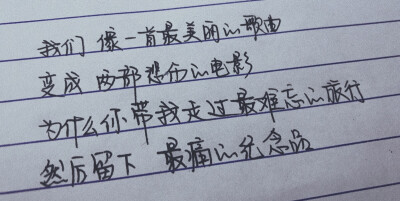 我们 像一首最美丽的歌曲
变成 两部悲伤的电影
为什么你带我走过最难忘的旅行
然后留下 最痛的纪念品